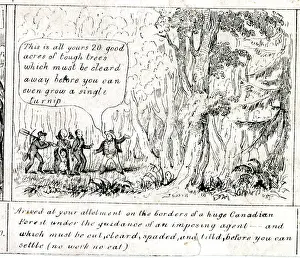 This is all yours 20 good
acres of tough trees
which must be cleard
away before you can
even grow a single
turnip
Arived at your allotment on the borders of a huge Canadian
Forest under the guidance of an imposing agent — and
which must be cut, cleard, spaded, and till'd, before you can
settle (no work no eat)